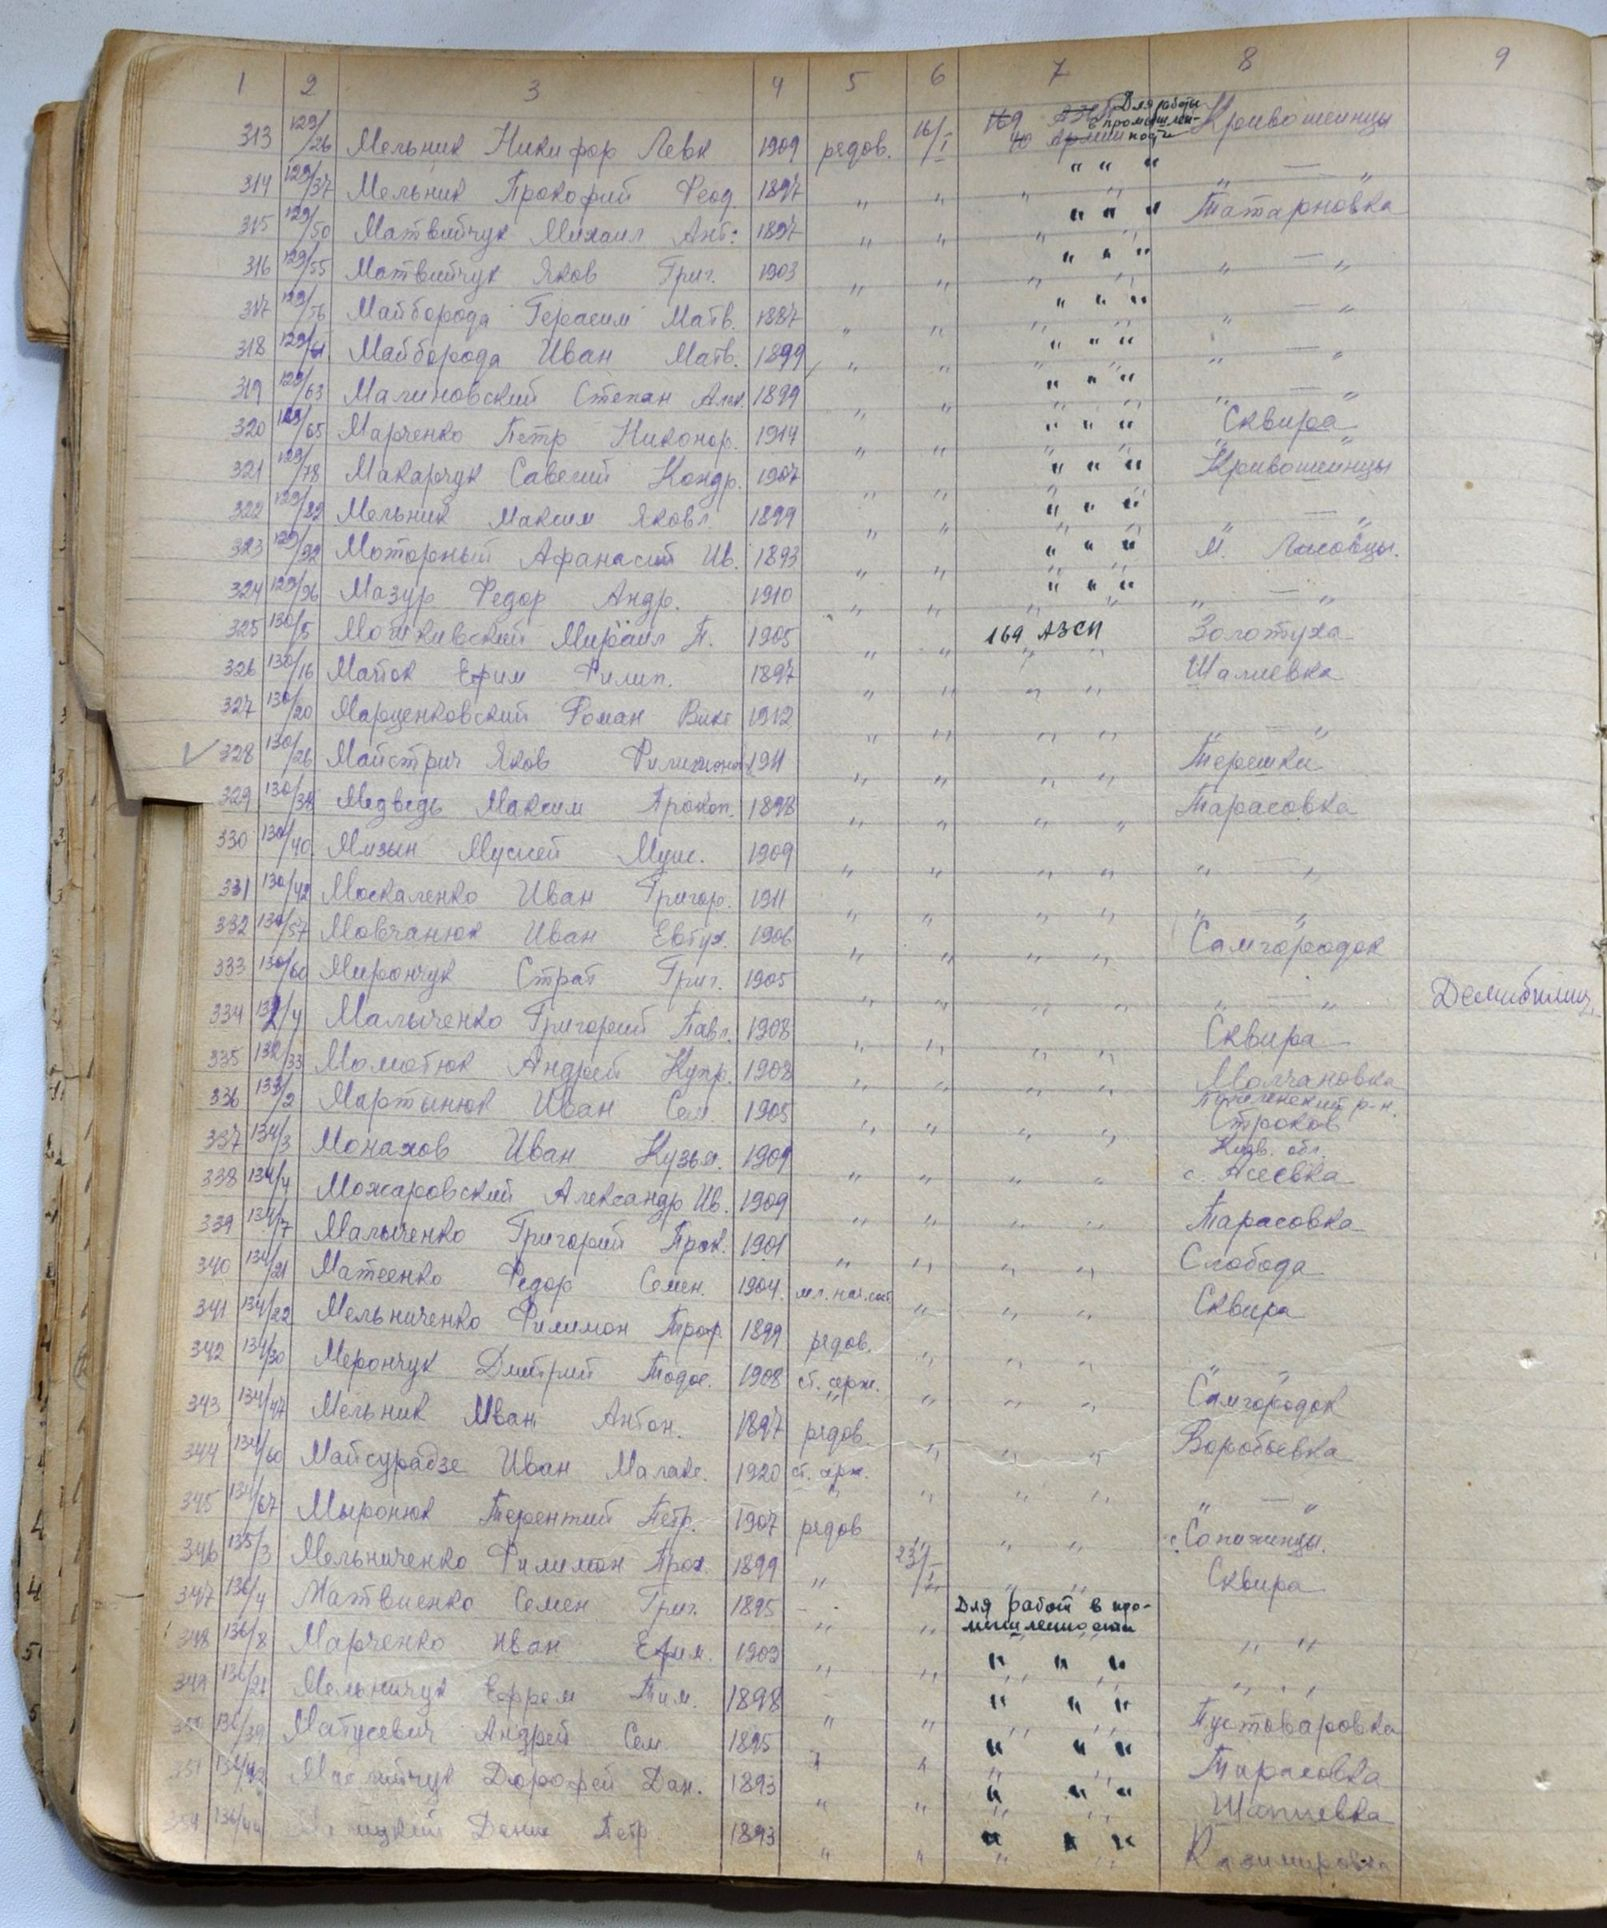 1 2 3 4 5 6 7 8 9
313 129/26 Мельник Никифор Левк 1909 рядов. 16/I 169 АЗСП 40 Армии Для работы в промышленности Кривошеинцы
314 129/37 Мельник Прокофий Феод. 1897 " " " " " " " " — "
315 129/50 Матвийчук Михаил Ант. 1897 " " " " " " " Татарновка
316 129/55 Матвийчук Яков Григ. 1903 " " " " " " " " — "
317 129/56 Майборода Герасим Матв. 1887 " " " " " " " " — "
318 129/61 Майборода Иван Матв. 1899 " " " " " " " " — "
319 129/63 Малиновский Степан Алек. 1899 " " " " " " " " — "
320 129/65 Марченко Петр Никонор. 1914 " " " " " " " Сквира
321 129/78 Макарчук Савелий Кондр. 1907 " " " " " " " Кривошеинцы
322 129/82 Мельник Максим Яковл 1899 " " " " " " " " — "
323 129/92 Моторный Афанасий Ив. 1893 " " " " " " " М. Лисовцы.
324 129/96 Мазур Федор Андр. 1910 " " " " " " " " — "
325 130/5 Мошкивский Мираил П. 1905 " " 169 АЗСП " " Золотуха
326 130/16 Маток Ефим Филип. 1897 " " " " Шалиевка
327 130/20 Марценковский Роман Викт 1912 " " " " " — "
328 130/26 Майстрич Яков Филимонов 1911 " " " " Терешки
329 130/38 Медведь Максим Прокоп. 1898 " " " " Тарасовка
330 130/40 Мизын Мусией Муис. 1909 " " " " " — "
331 130/42 Москаленко Иван Григор. 1911 " " " " " — "
332 130/57 Мовчанюк Иван Евтух. 1906 " " " " Самгородок
333 130/60 Мирончук Страт Григ. 1905 " " " " " — "
334 132/4 Малыченко Григорий Павл. 1908 " " " " Сквира
335 132/33 Момотюк Андрей Купр. 1908 " " " " Молчановка
336 133/2 Мартынюк Иван Сем 1905 " " " " р-н. Строков
337 134/3 Монахов Иван Кузьм. 1909 " " " " Киев. обл. с. Асеевка
338 134/4 Можаровский Александр Ив. 1909 " " " " Тарасовка
339 134/7 Малыченко Григорий Прок. 1901 " " " " Слобода
340 134/21 Матеенко Федор Семен. 1904. мл. нач. сост " " " Сквира
341 134/22 Мельниченко Филимон Троф 1899 рядов. " " " " — "
342 134/30 Мерончук Дмитрий Тодос. 1908 ст. серж. " " " Самгородок
343 134/47 Мельник Иван Антон. 1897 рядов " " " Воробьевка
344 134/60 Майсурадзе Иван Малакс. 1920 ст. серж. " " " " — "
345 134/67 Мыронюк Терентий Петр. 1907 рядов " " " с. Сопиженцы.
346 135/3 Мельниченко Филимон Прох. 1899 " 23/I " " Сквира
347 136/4 Матвиенко Семен Григ. 1895 " " Для работ в про-
мышленности " "
348 136/8 Марченко Иван Ефим. 1903 " " " " " " "
349 136/21 Мельничук Ефрем Тим. 1898 " " " " " Пустоваровка
350 136/39 Матусевич Андрей Сем. 1895 " " " " " Тарасовка
351 136/42 Маслийчук Дорофей Дан. 1893 " " " " " Шапиевка
136/44 Денис Петр 1893 " " " " " Казимировка